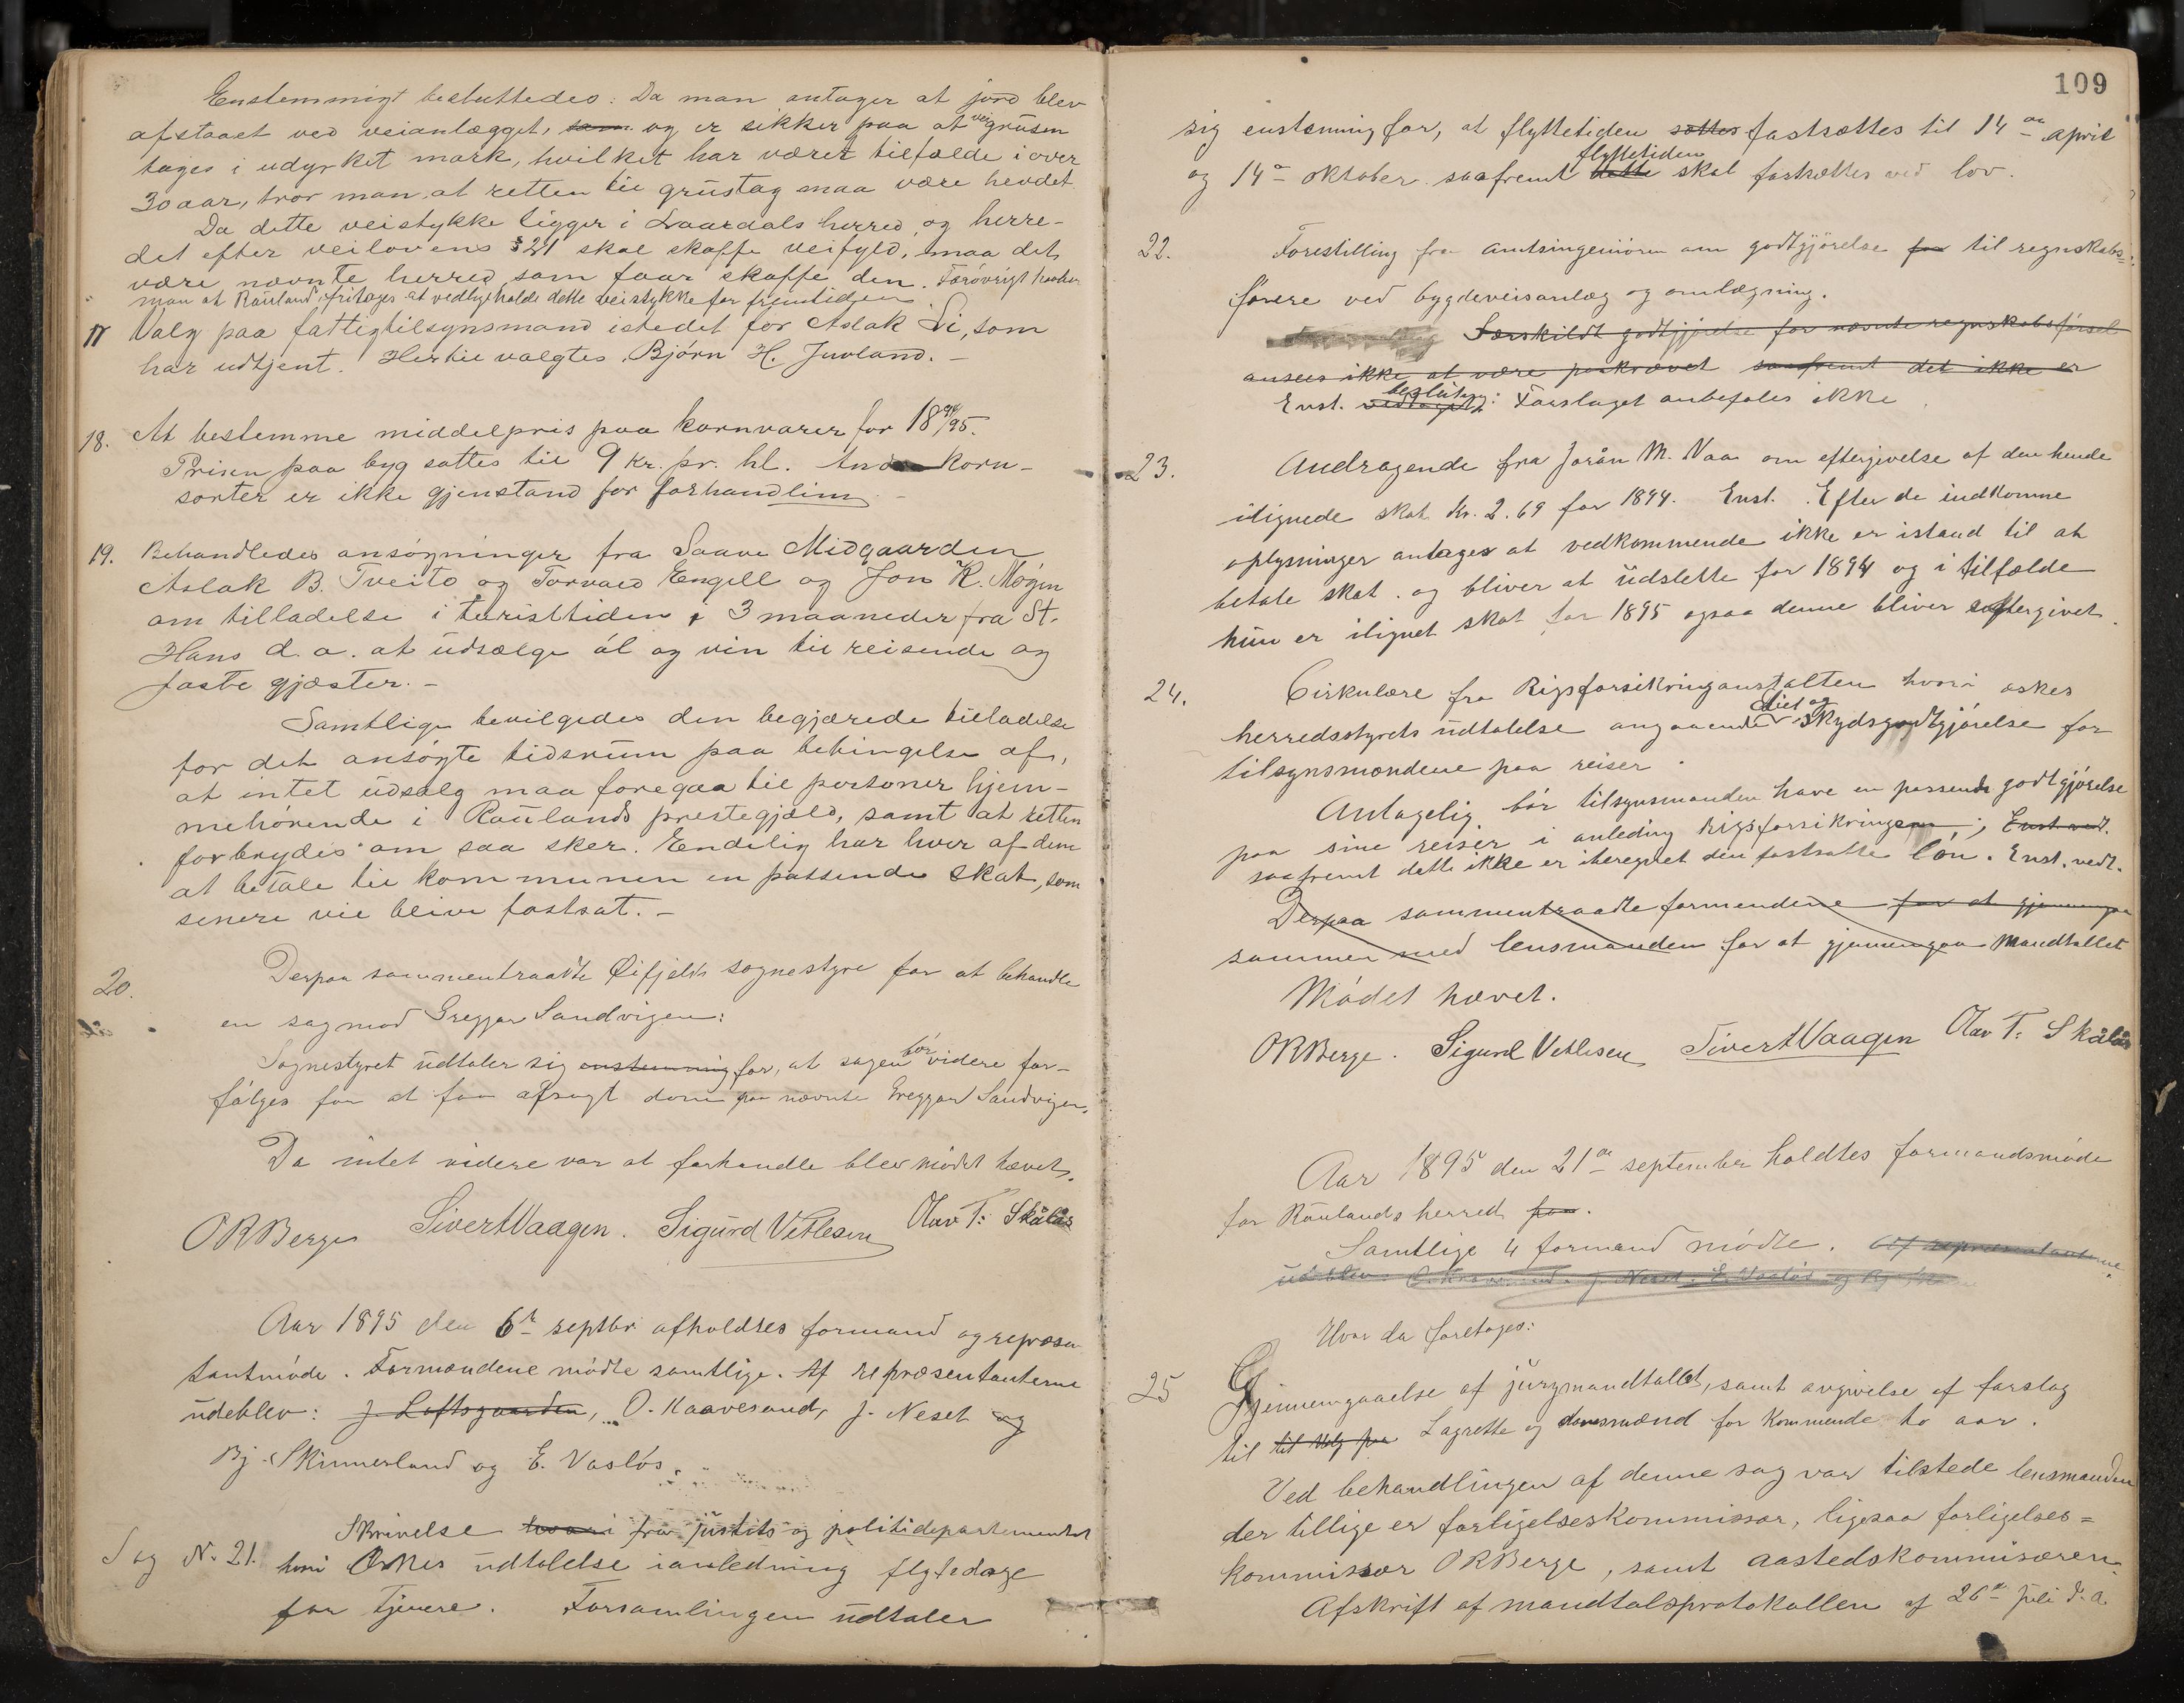 Enstemmigt besluttedes: Da man antager at jord blev
afstaaet ved veianlægget, som og er sikker paa at veigrusen
tages i udyrket mark, hvilket har været tilfælde i over
30 aar, tror man at retten til grustag maa være hevdet.
Da dette veistykke ligger i Laardals herred, og herre-
det efter veilovens § 21 skal skaffe veifyld, maa det
være nævnte herred som faar skaffe den. Forøvrigt haaber
man at Rauland fritages at vedligeholde dette veistykke for fremtiden.
17 Valg paa fattigtilsynsmand istedet for Aslak Li, som
har udtjent. Hertil valgtes Bjørn H. Juvland. -
18. At bestemme middelpris paa kornvarer for 1894/95.
Prisen paa byg sattes til 9 kr. pr. hl. Andre korn-
sorter er ikke gjenstand for forhandling. -
19. Behandledes ansøgninger fra Saave Midgaarden
Aslak B. Tveito og Torvald Engell og Jon K. Mogen
om tilladelse i turisttiden i 3 maaneder fra St.
Hans d. a. at udsælge øl og vin til reisende og
faste gjæster. -
Samtlige bevilgedes den begjærede tilladelse
for det ansøgte tidsrum paa betingelse af,
at intet udsalg maa foregaa til personer hjem-
mehørende i Raulands prestegjæld, samt at retten
forbrydes om saa sker. Endelig har hver af dem
at betale til kommunen en passende skat, som
senere vil blive fastsat. -
20. Derpaa sammentraadte Øifjelds sognestyre for at behandle
en sag mod Greggar Sandvigen:
Sognestyret udtaler sig enstemmig for, at sagen bør videre for-
følges for at faa afsagt dom paa nævnte Greggar Sandvigen.
Da intet videre var at forhandle blev mødet hævet.
O R Berge Sivert Vaagen. Sigurd Vetlesen Olav T. Skålås
Aar 1895 den 6te septbr afholdtes formand og represen
tantmøde. Formændene mødte samtlige. Af representanterne
udeblev: J. Loftsgaarden, O. Kaavesand, J. Neset og
Bj. Skinnerland og E. Vasløs.
Sag N. 21. Skrivelse hvori fra justits og politidepartementet
hvori Ønskes udtalelse ianledning flytedage
for tjenere. Forsamlingen udtaler
109
sig enstemmig for, at flyttetiden sættes fastsættes til 14de april
og 14de oktober saafremt dette flyttetiden skal fastsættes ved lov.
22. Forestilling fra amtsingeniøren om godtgjørelse for til regnskabs-
førere ved bygdeveisanlæg og omlægning.
Særskildt godtgjørelse for nævnte regnskabsførsel
ansees ikke at være paakrævet saafremt det ikke er
Enst. vedtaget beslutning: Forslaget anbefales ikke.
23. Andragende fra Jorån M. Vaa om eftergivelse af den hende
ilignede skat Kr. 2.69 for 1894. Enst. Efter de indkomne
oplysninger antages at vedkommende ikke er istand til at
betale skat. og bliver at udslette for 1894 og i tilfælde
hun er ilignet skat for 1895 ogsaa denne bliver eftergivet.
24. Cirkulære fra Rigsforsikringanstalten hvori øskes
herredsstyrets udtalelse angaaende diet og skydsgodtgjørelse for
tilsynsmændene paa reiser.
Antagelig bør tilsynsmanden have en passende godtgjørelse
paa sine reiser i anleding Rigsforsikringen; Enst. vedt.
saafremt dette ikke er iberegnet den fastsatte løn. Enst. vedt.
Derpaa sammentraadte formendene for at gjennemgaa
sammen med lensmanden for at gjennemgaa Mandtallet
Mødet hævet.
O R Berge. Sigurd Vetlesen Sivert Vaagen Olav T. Skålås
Aar 1895 den 21de september holdtes formandsmøde
for Raulands herred paa.
Samtlige 4 formænd mødte. Af representanterne
udeblev J. Neset. E. Vasløs og Bj.
Hvor da foretages:
25 Gjennemgaaelse af jurymandtallet, samt avgivelse af forslag
til til Valg paa Lagrette og domsmænd for kommende to aar.
Ved behandlingen af denne sag var tilstede lensmanden
der tillige er forligelseskommissær, ligesaa forligelses-
kommissær O R Berge, samt aastedskommisæren.
Afskrift af mandtalsprotokollen af 26de juli d. a.